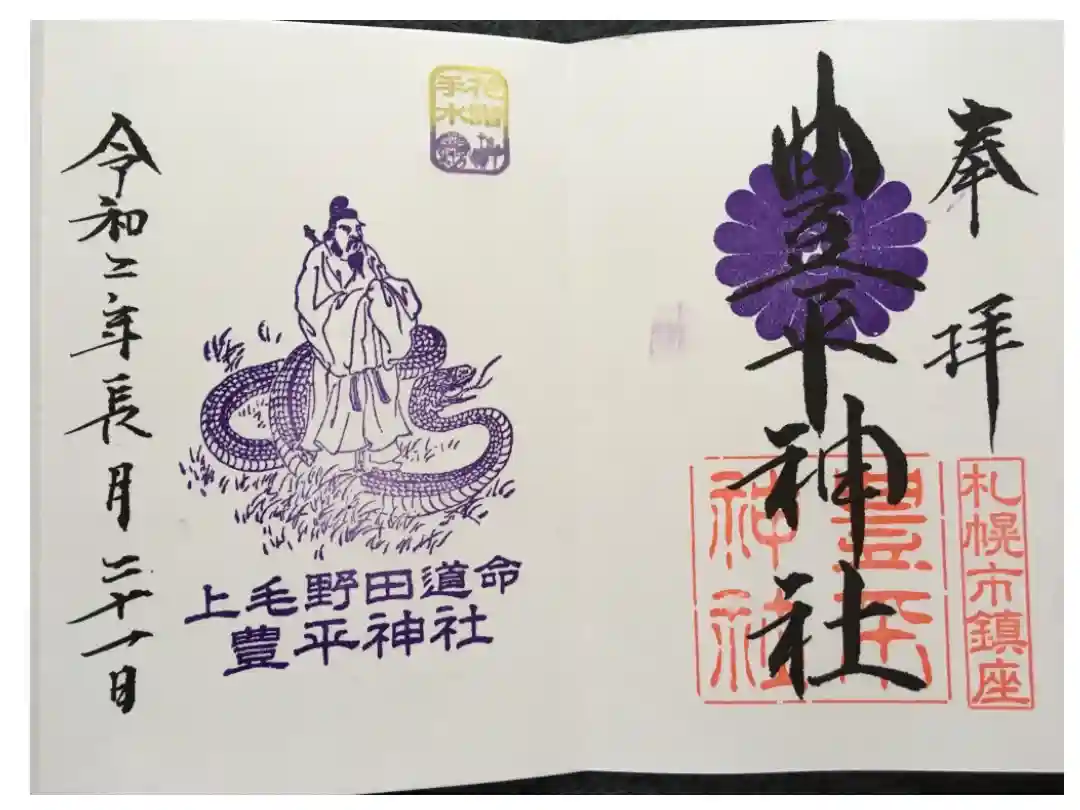 奉拝
豊平神社
札幌市鎮座
豊平
神社
花
手水
上毛野田道命
豊平神社
令和二年長月二十一日